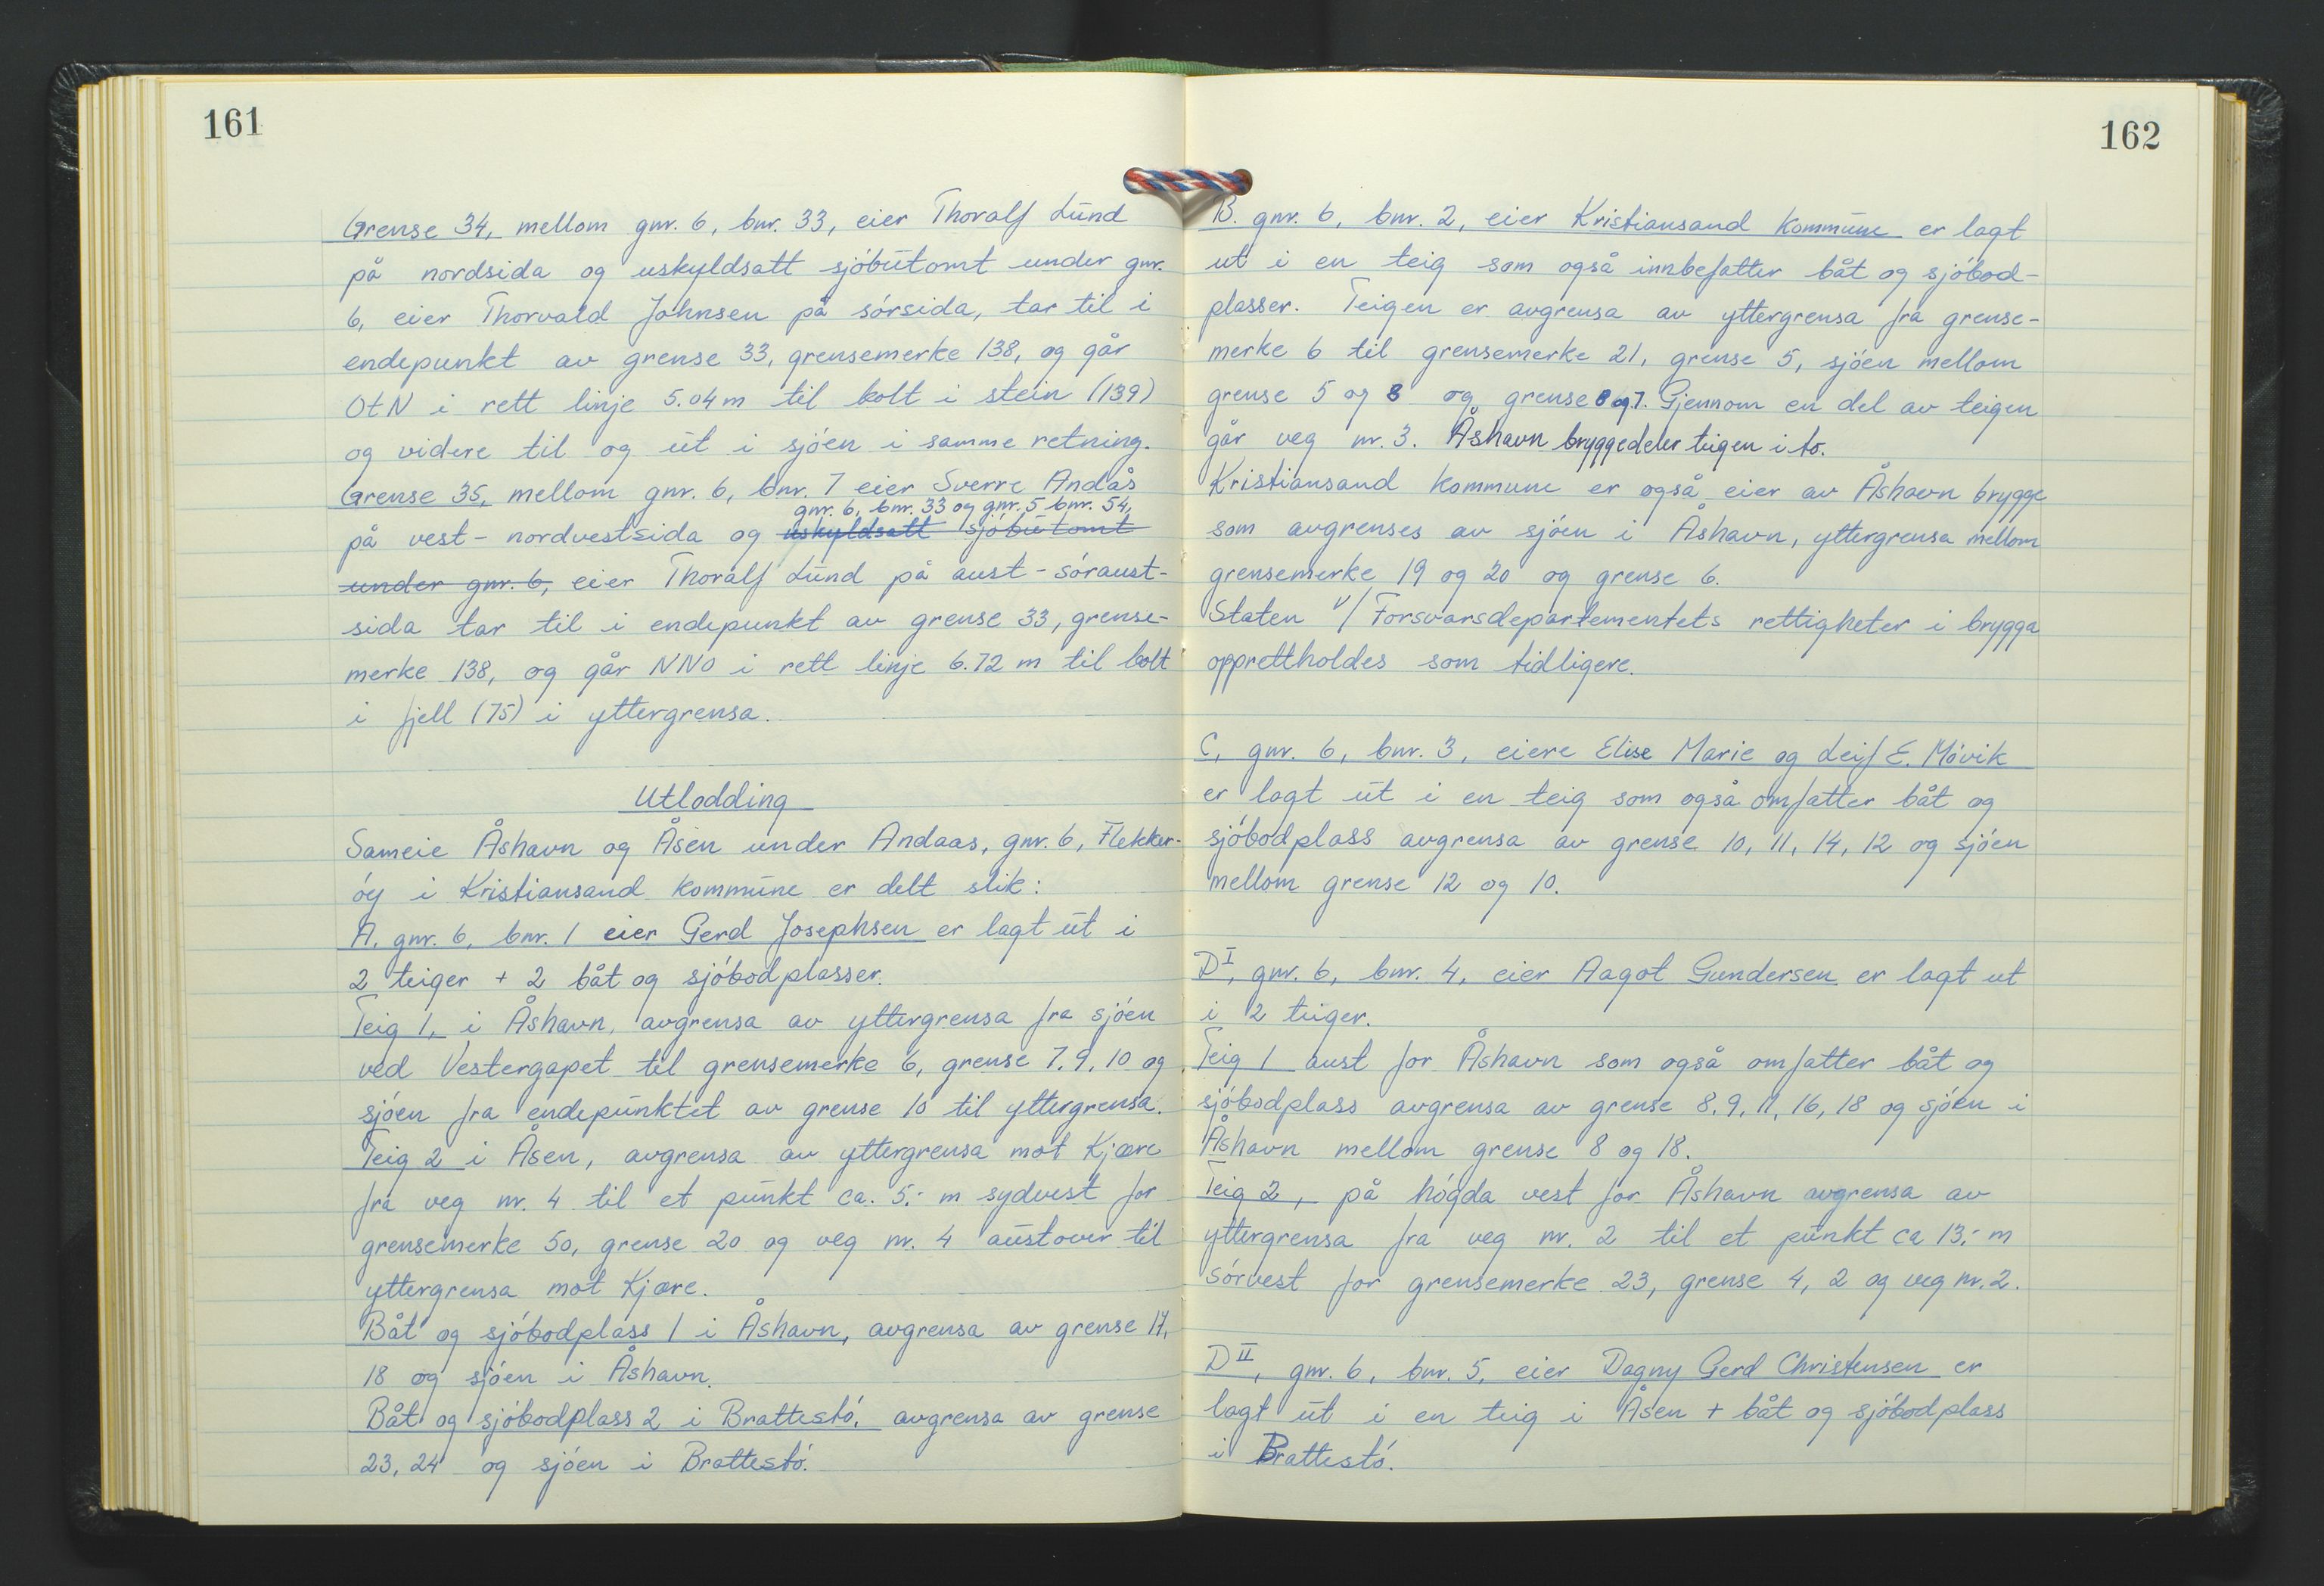 161
Grense 34, mellom gnr. 6, bnr. 33, eier Thoralf Lund
på nordsida og uskyldsatt sjøbutomt under gnr.
6, eier Thorvald Johnsen på sørsida, tar til i
endepunkt av grense 33, grensemerke 138, og går
OtN i rett linje 5.04 m til bolt i stein (139)
og videre til og ut i sjøen i samme retning.
Grense 35, mellom gnr. 6, bnr. 7 eier Sverre Andås
gnr. 6, bnr. 33 og gnr. 5 bnr. 54,
på vest- nordvestsida og uskyldsatt sjøbutomt
under gnr. 6, eier Thoralf Lund på aust- søraust-
sida tar til i endepunkt av grense 33, grense-
merke 138, og går NNO i rett linje 6.72 m til bolt
i fjell (75) i yttergrensa.
Utlodding
Sameie Åshavn og Åsen under Andaas, gnr. 6, Flekker-
øy i Kristiansand kommune er delt slik:
A, gnr. 6, bnr. 1 eier Gerd Josephsen er lagt ut i
2 teiger + 2 båt og sjøbodplasser.
Teig 1, i Åshavn, avgrensa av yttergrensa fra sjøen
ved Vestergapet til grensemerke 6, grense 7, 9, 10 og
sjøen fra endepunktet av grense 10 til yttergrensa.
Teig 2 i Åsen, avgrensa av yttergrensa mot Kjære
fra veg nr. 4 til et punkt ca. 5,- m sydvest for
grensemerke 50, grense 20 og veg nr. 4 austover til
yttergrensa mot Kjære.
Båt og sjøbodplass 1 i Åshavn, avgrensa av grense 17,
18 og sjøen i Åshavn.
Båt og sjøbodplass 2 i Brattestø, avgrensa av grense
23, 24 og sjøen i Brattestø.
162
B. gnr. 6, bnr. 2, eier Kristiansand kommune er lagt
ut i en teig som også innbefatter båt og sjøbod-
plasser. Teigen er avgrensa av yttergrensa fra grense-
merke 6 til grensemerke 21, grense 5, sjøen mellom
grense 5 og 8 og grense 8 og 7. Gjennom en del av teigen
går veg nr. 3. Åshavn brygge deler teigen i to.
Kristiansand kommune er også eier av Åshavn brygge
som avgrenses av sjøen i Åshavn, yttergrensa mellom
grensemerke 19 og 20 og grense 6.
Staten v/ Forsvarsdepartementets rettigheter i brygga
opprettholdes som tidligere.
C, gnr. 6, bnr. 3, eiere Elise Marie og Leif E. Møvik
er lagt ut i en teig som også omfatter båt og
sjøbodplass avgrensa av grense 10, 11, 14, 12 og sjøen
mellom grense 12 og 10.
D I, gnr. 6, bnr. 4, eier Aagot Gundersen er lagt ut
i 2 teiger.
Teig 1 aust for Åshavn som også omfatter båt og
sjøbodplass avgrensa av grense 8, 9, 11, 16, 18 og sjøen i
Åshavn mellom grense 8 og 18.
Teig 2, på høgda vest for Åshavn avgrensa av
yttergrensa fra veg nr. 2 til et punkt ca 13,- m
sørvest for grensemerke 23, grense 4, 2 og veg nr. 2.
D II, gnr. 6, bnr. 5, eier Dagny Gerd Christensen er
lagt ut i en teig i Åsen + båt og sjøbodplass
i Brattestø.